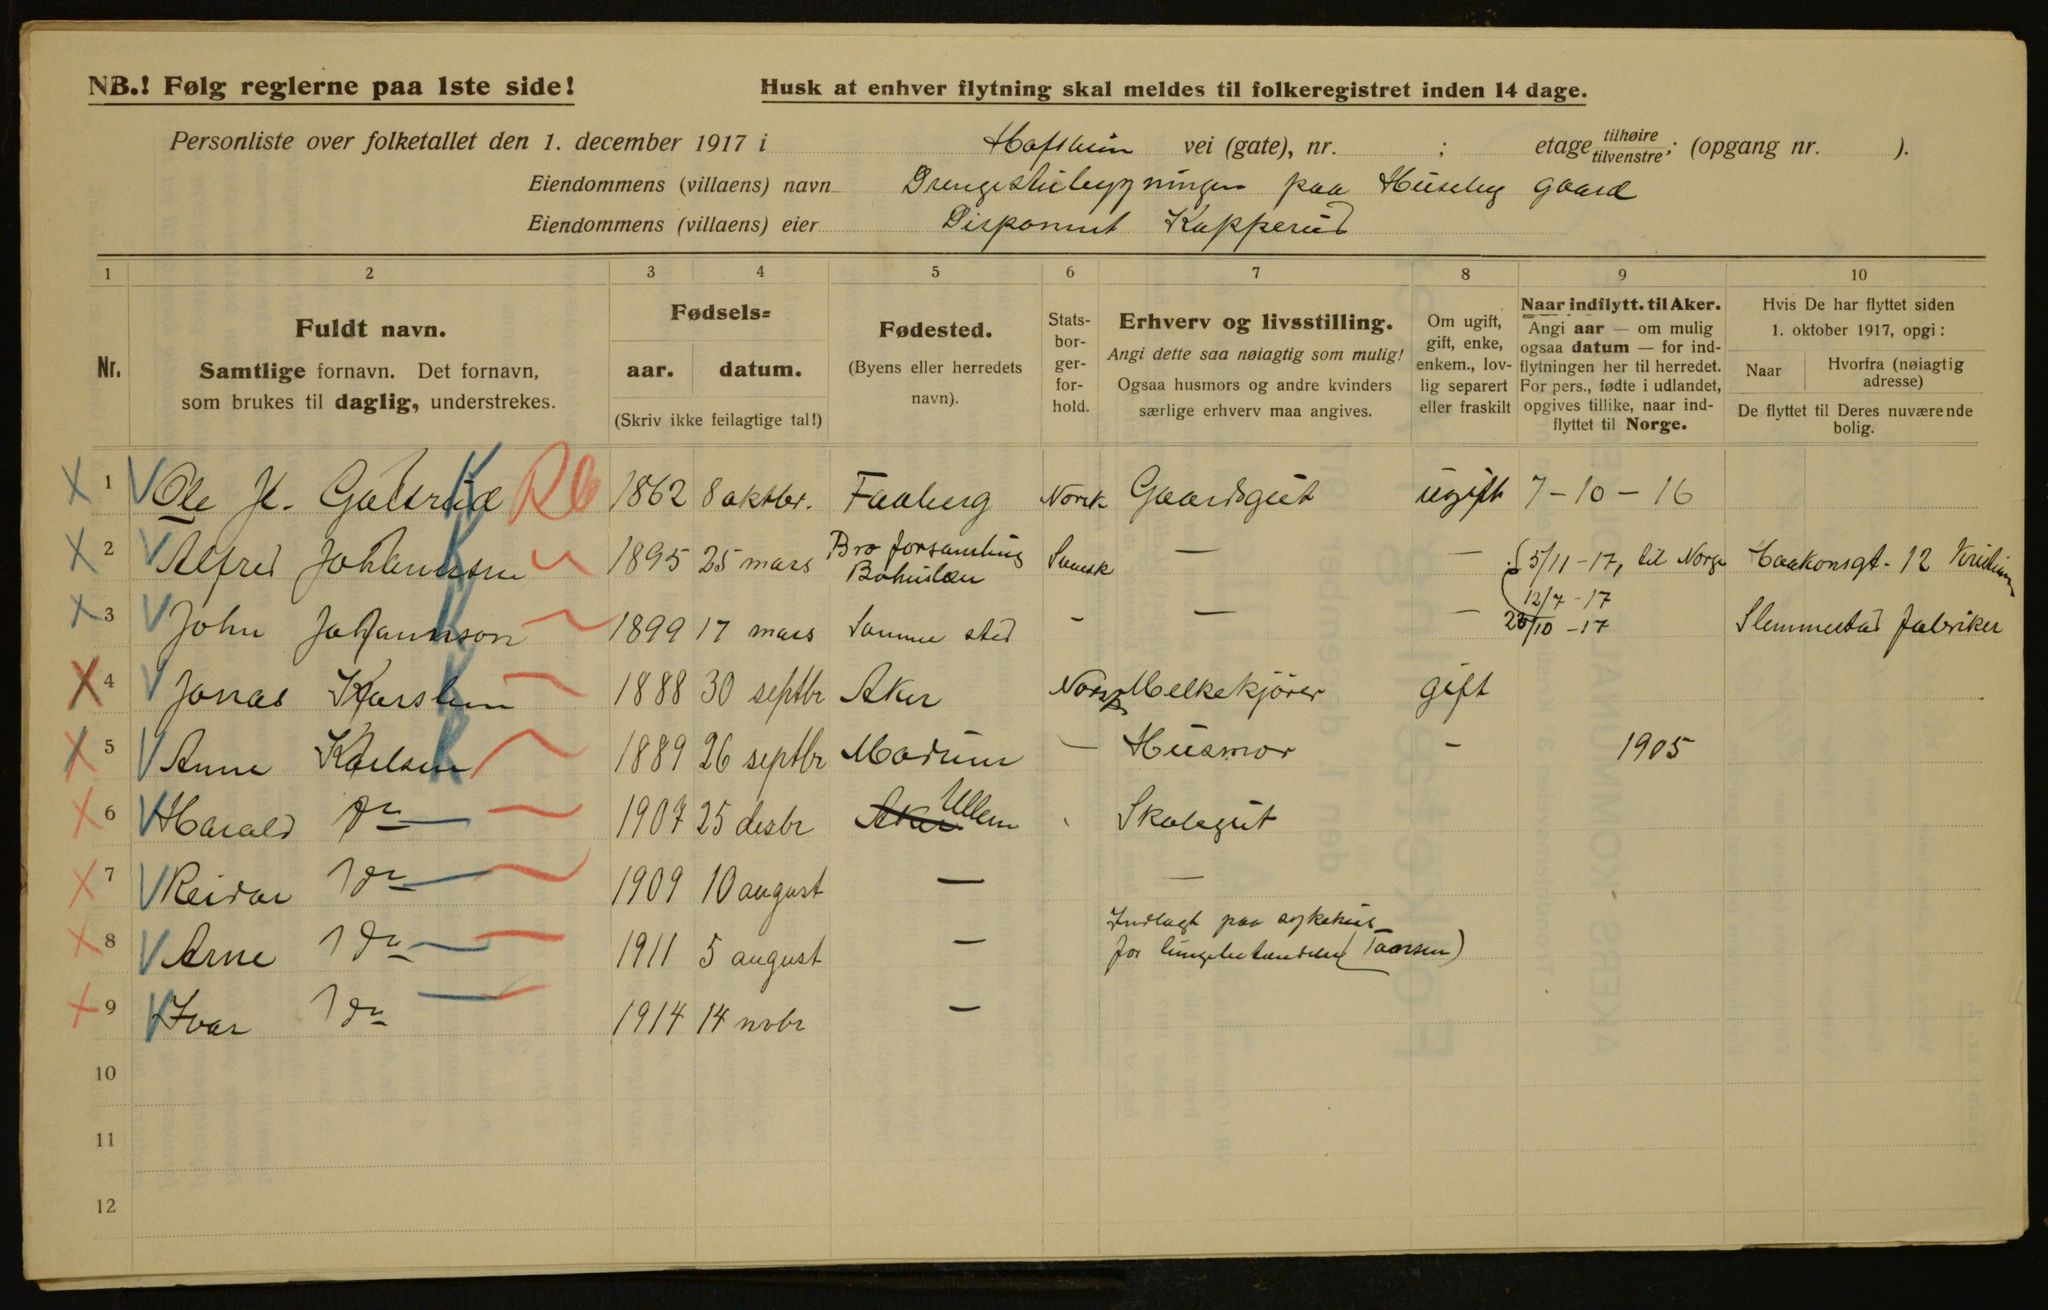 NB.! Følg reglerne paa 1ste side!
Husk at enhver flytning skal meldes til folkeregistret inden 14 dage.
Personliste over folketallet den 1. december 1917 i vei (gate), nr. ; etage tilhøire tilvenstre; (opgang nr. ).
Eiendommens (villaens) navn Drengestubygningen paa Huseby gaard
Eiendommens (villaens) eier Disponent Kapperud
1 2 3 4 5 6 7 8 9 10
Nr.
Fuldt navn.
Samtlige fornavn. Det fornavn,
som brukes til daglig, understrekes.
Fødsels=
aar. datum.
(Skriv ikke feilagtige tal!)
Fødested.
(Byens eller herredets
navn).
Stats-
bor-
ger-
for-
hold.
Erhverv og livsstilling.
Angi dette saa nøiagtig som mulig!
Ogsaa husmors og andre kvinders
særlige erhverv maa angives.
Om ugift,
gift, enke,
enkem., lov-
lig separert
eller fraskilt
Naar indflytt. til Aker.
Angi aar — om mulig
ogsaa datum — for ind-
flytningen her til herredet.
For pers., fødte i udlandet,
opgives tillike, naar ind-
flyttet til Norge.
Hvis De har flyttet siden
1. oktober 1917, opgi:
Naar
Hvorfra (nøiagtig
adresse)
De flyttet til Deres nuværende
bolig.
1 Ole H. 1862 8 oktbr. Faaberg Norsk Gaardsgut ugift 7-10-16
2 Alfred Johannsen 1895 25 mars Bro forsamling Bohuslen Svensk — — 5/11-17, til Norge Haakonsgt. 12
12/7-17
3 John Johannson 1899 17 mars Samme sted - — — 23/10-17 Slemmestad fabriker
4 Jonas Karslen 1888 30 septbr Aker Norsk Melkekjører gift
5 Anne Karlsen 1889 26 septbr Modum — Husmor - 1905
6 Harald do 1907 25 desbr Aker Ullern Skolegut
7 Reidar do 1909 10 august — —
8 Arne do 1911 5 august — Indlagt paa sykehus
for lungebetændelse
9 Ivar do 1914 14 novbr —
10
11
12